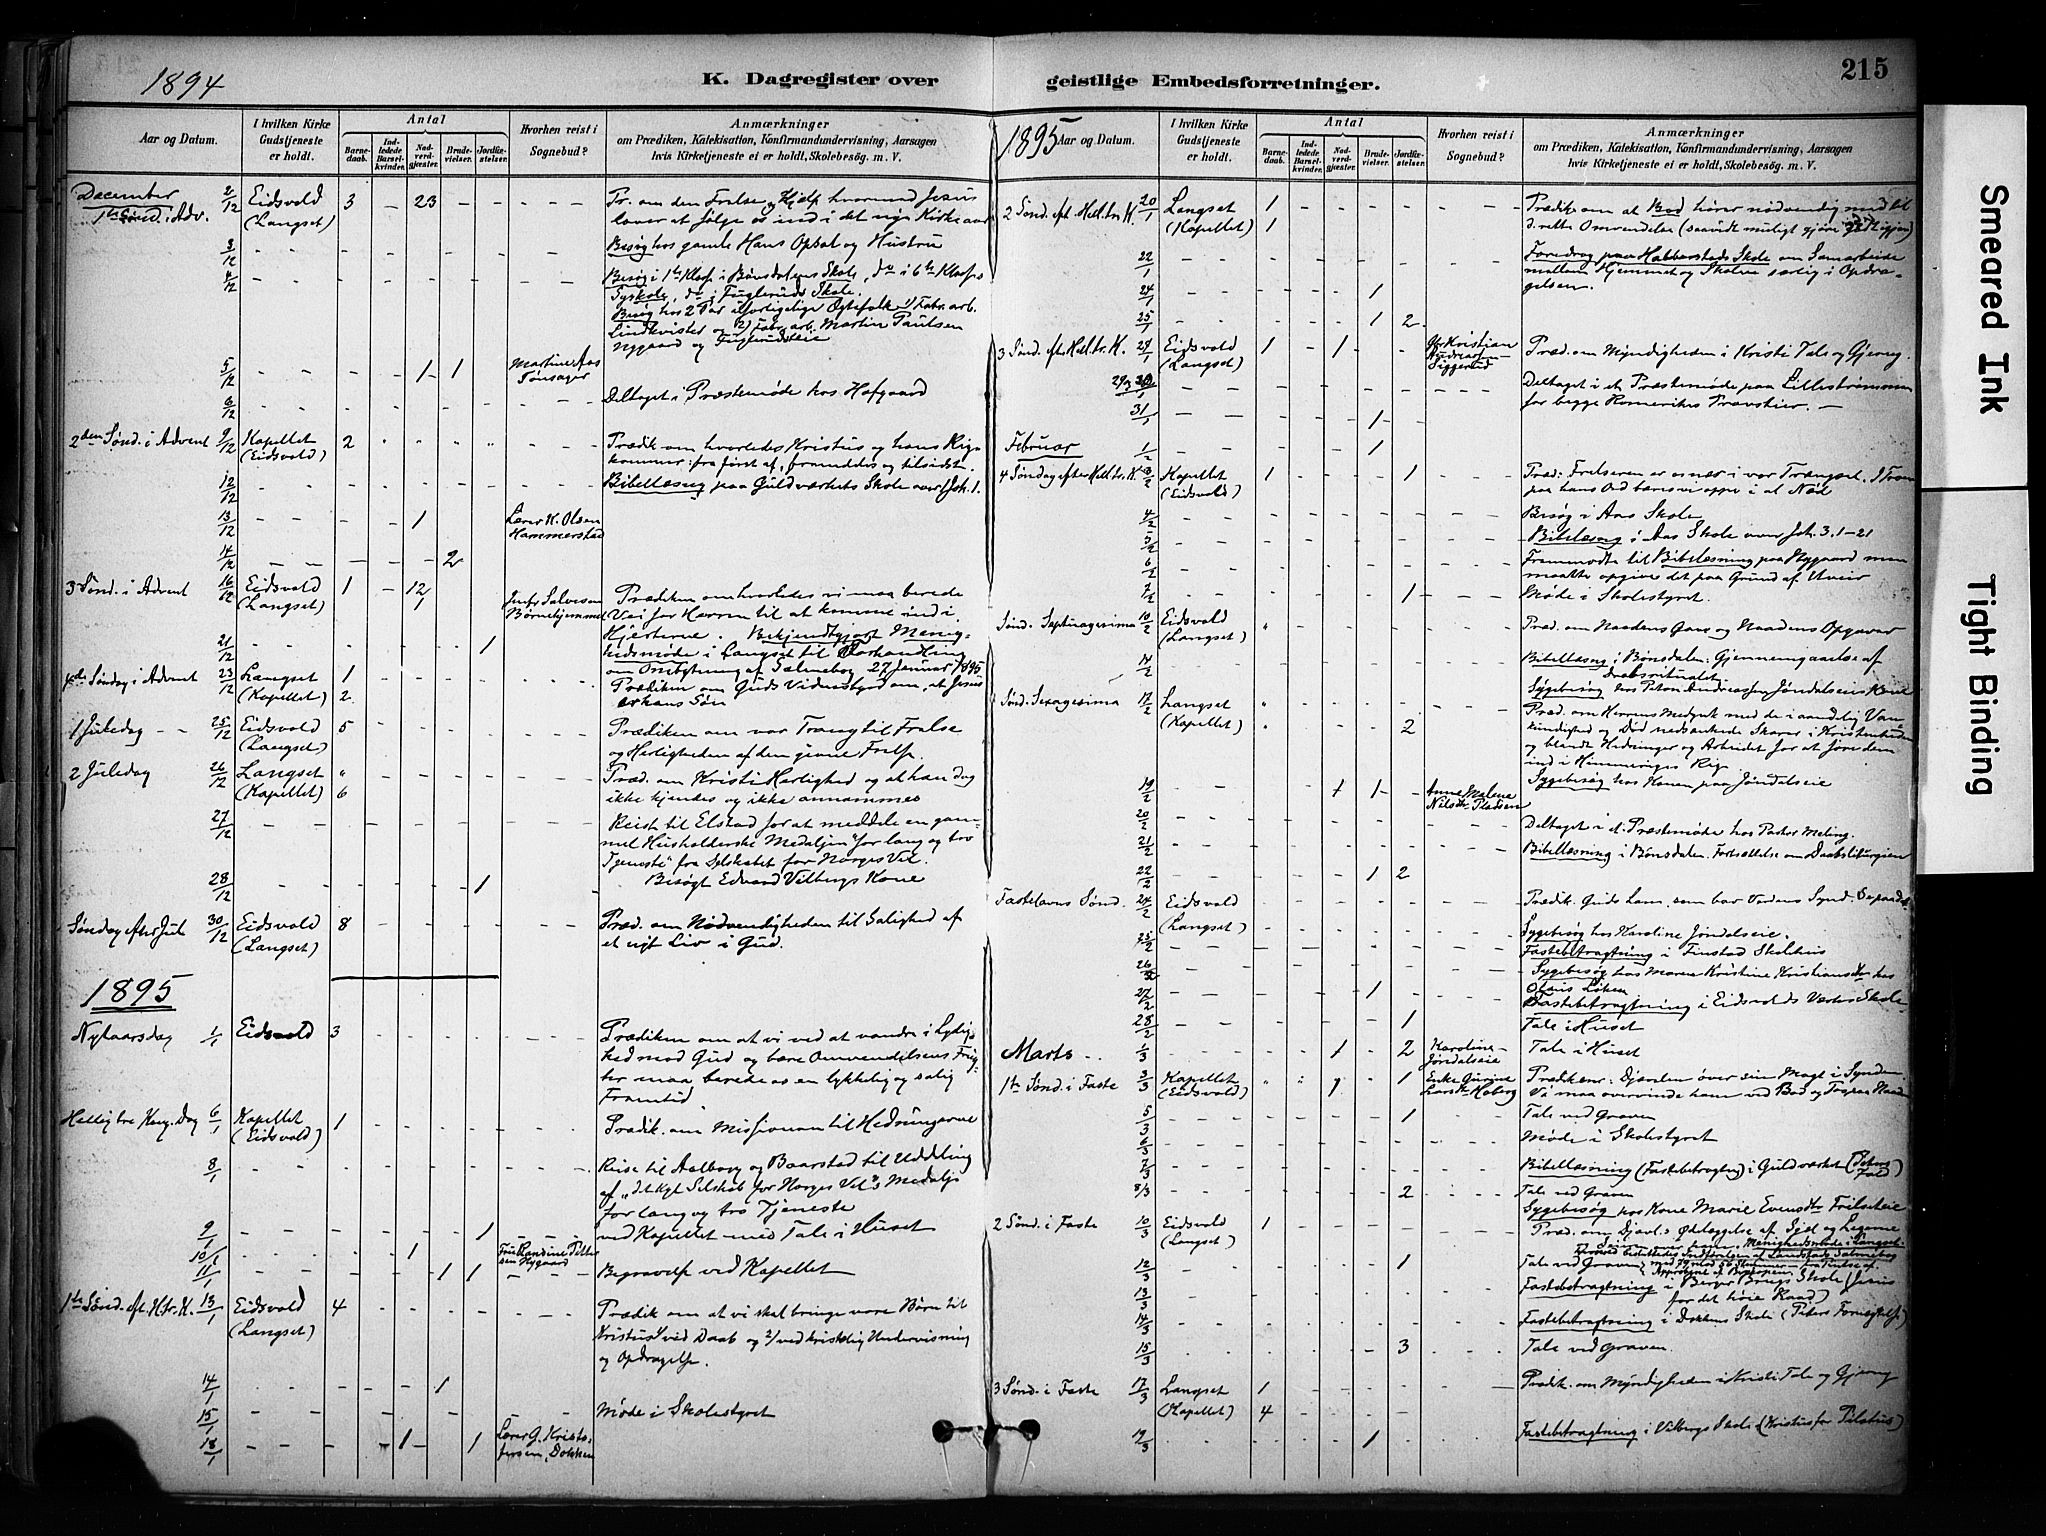 1894
K. Dagregister over
geistlige Embedsforretninger.
215
Aar og Datum.
I hvilken Kirke Gudstjeneste er holdt.
Antal
Barnedaab.
Indledede Barselkvinder.
Nadverdgjester.
Brudevielser.
Jordfæstelser.
Hvorhen reist i Sognebud?
Anmærkninger
om Prædiken, Katekisation, Konfirmandundervisning, Aarsagen
hvis Kirketjeneste ei er holdt, Skolebesøg. m. V.
December 2/12 Eidsvold 3 - 23 - - - Pr. om den Frelse og Hjælp hvormed Jesus
1ste Sønd. i Adv. (Langset) lover at følge os ind i det nye Kirkeaar
3/12 Besøg hos gamle Hans Opsal og Hustru
4/12 Besøg i 1ste Klasse i Bønsdalens Skole, do i 6te Klasses
Syskole, do i Fuglerud Skole.
Besøg hos 2 Par uforligelige Ægtefolk 1) Fabr. arb.
Lindkvister og 2) Fabr. arb. Martin Paulsen
Nygaard og
5/12 - - - 1 1 Martine Aas
Tønsager
6/12 Deltaget i Præstemøde hos Hofgaard
2den Sønd. i Advent 9/12 Kapellet 2 Prædik om hvorledes Kristus og hans Rige
(Eidsvold) kommer: fra først af, fremdeles og tilsidst.
12/12 Bibellæsning paa Guldverkets Skole over Joh. 1.
13/12 - - 1 Lærer K. Olsen
Hammerstad
14/12 - - 2
3 Sønd. i Advent 16/12 Eidsvold 1 - 12 Prædiken om hvorledes vi maa berede
(Langset) 1 Jnfr Salvesen Vei for Herren til at komme ind i
Børnehjemmet Hjerterne. Bekjendtgjort Menig-
21/12 1 hedsmøde i Langset til Forhandling
om Ombytning af Salmebog 27 Januar 1895
4de Søndag i Advent 23/12 Langset 1 Prædiken om Guds Vidnesbyrd om, at Jesus
(Kapellet) 2 er hans Søn
1 Juledag 25/12 Eidsvold 5 Prædiken om vor Trang til Frelse
(Langset) og Herligheden af den givne Frelse.
2 Juledag 26/12 Langset " Præd. om Kristi Herlighed og at han dog
(Kapellet) 6 ikke kjendes og ikke annammes
27/12 Reist til Elstad for at meddele en gam-
mel Husholderske Medaljen "for lang og tro
Tjeneste" fra Selskabet for Norges Vel.
28/12 1 Besøgt Edvard Vilbergs Kone
Søndag efter Jul 30/12 Eidsvold 8 Præd. om Nødvendigheden til Salighed af
(Langset) et nyt Liv i Gud.
1895
Nytaarsdag 1/1 Eidsvold 3 Prædiken om at vi ved at vandre i Lydig-
hed mod Gud og bære Omvendelsens Frug-
ter maa berede os en lykkelig og salig
Fremtid
Hellig tre Kong. Dag 6/1 Kapellet 1 Prædik. om Missionen til Hedningerne
(Eidsvold)
8/1 Reise til Aalborg og Baarstad til Uddeling
af "det kgl Selskab for Norges Vel"s Medalje
for lang og tro Tjeneste
9/1 1 ved Kapellet med Tale i Huset
10/1 1 Fru Randine Petter-
sen Nygaard
11/1 1 1 Begravelse ved Kapellet
1ste Sønd. eft. H. tr. K. 13/1 Eidsvold 4 Prædik om at vi skal bringe vore Børn til
(Langset) Kristus 1/ ved Daab og 2/ ved kristelig Undervisning
og Opdragelse.
14/1 1
15/1 Møde i Skolestyret
18/1 1 - 1 Lærer G. Kristo-
fersen, Dokken
1895 Aar og Datum.
I hvilken Kirke Gudstjeneste er holdt.
Antal
Barnedaab.
Indledede Barselkvinder.
Nadverdgjester.
Brudevielser.
Jordfæstelser.
Hvorhen reist i Sognebud?
Anmærkninger
om Prædiken, Katekisation, Konfirmandundervisning, Aarsagen
hvis Kirketjeneste ei er holdt, Skolebesøg. m. V.
2 Sønd. eft. Hell. tr. K. 20/1 Langset 1 Prædik om at Bod hører nødvendig med til
(Kapellet) 1 d. rette Omvendelse (saavidt muligt gjøre godt igjen)
22/1 Foredrag paa Habberstads Skole om Samarbeide
mellem Hjemmet og Skolen særlig i Opdra-
24/1 1 gelsen.
25/1 1 2
3 Sønd. efter Hell. tr. K. 27/1 Eidsvold 1 - 1 Kristian Præd. om Myndigheden i Kristi Tale og Gjerng.
(Langset) Andreassen
Siggerud
29 & 30/1 Deltaget i et Præstemøde paa Lillestrømmen
31/1 1 for begge Romerikes Provstier. —
Februar 1/2 1
4 Søndag efter Hell. tr. K. 3/2 Kapellet 1 1 Præd: Frelseren er os nær i vor Trængsel.
(Eidsvold) paa hans Ord bæres vi oppe i al Nød
4/2 Besøg i Aas Skole
5/2 Bibellæsng i Aas Skole over Joh. 3.1-21
6/2 Fremmødte til Bibellæsning paa Nygaard men
maatte opgive det paa Grund af Uveir
7/2 1 Møde i Skolestyret.
Sønd. Septuagesima 10/2 Eidsvold " Præd. om Naadens Gave og Naadens Opgaver
(Langset)
14/2 Bibellæsng i Bønsdalen: Gjennemgaaelse af
Daabsritualet
Sygebesøg hos Jøndalseies Kone
Sønd. Sexagesima 17/2 Langset " Præd. om Herrens Medynk med de i aandelig Van-
(Kapellet) " 2 kundighed og Død nedsænkede Skarer i Kristenheden
og blandt Hedninger og Arbeidet for at føre dem
ind i Himmeriges Rige
19/2 1 1 - Anne Malene Sygebesøg hos Konen paa Jøndalseie
Nilsdtr Pladsen
20/2 Deltaget i et Præstemøde hos Pastor Meling.
21/2 Bibellæsning i Bønsdalen. Fortsættelse om Daabsliturgien
22/2 1 2
Fastelavns Sønd. 24/2 Eidsvold Prædik. Guds Lam, som bar Verdens Synd.
(Langset) Sygebesøg hos Karoline Jøndalseie.
25/2 Fastebetragtning i Finstad Skolehus
26/2 Sygebesøg hos Maren Kristine Kristiansdtr hos
Olaus Løken
27/2 1 Fastebetragtning i Eidsvolds Verks Skole
28/2 1 Tale i Huset
Marts 1/3 1 - 2 Karoline Tale i Huset
Jøndalseie
1ste Sønd. i Faste 3/3 Kapellet " " 1 1 Enke Gurine Prædiken: Djævelen øver sin Magt i Synden
(Eidsvold) Larsdtr Hoberg Vi maa overvinde ham ved Bod og Tro paa Naaden
5/3 1 Tale ved Graven
6/3 Møde i Skolestyret
7/3 Bibellæsning (Fastebetragtng) i Guldverket (Peters Fald)
8/3 2 Tale ved Graven
Sygebesøg hos Kone Marie Evensdtr Frilseteie
2 Sønd. i Faste 10/3 Eidsvold 1 Præd. om Djævl.s Ødelæggelse af Sjæl og Legeme
(Langset) Menighedsmøde i Langset
Indførelsen af Landstads Salmebog
12/3 1 Tale ved Graven
13/3 Fastebetragtning i Berger Brugs Skole (Jesus
for det høie Raad)
14/3 Fastebetragtning i Dokkens Skole (Peters Fornegtelse)
15/3 3 Tale ved Graven.
3 Sønd. i Faste 17/3 Langset 1 Prædik. om Myndigheden i Kristi Tale og Gjerng
(Kapellet) 4
19/3 1 Fastebetragtning i Vilbergs Skole (Kristus for Pilatus)
Smeared Ink
Tight Binding